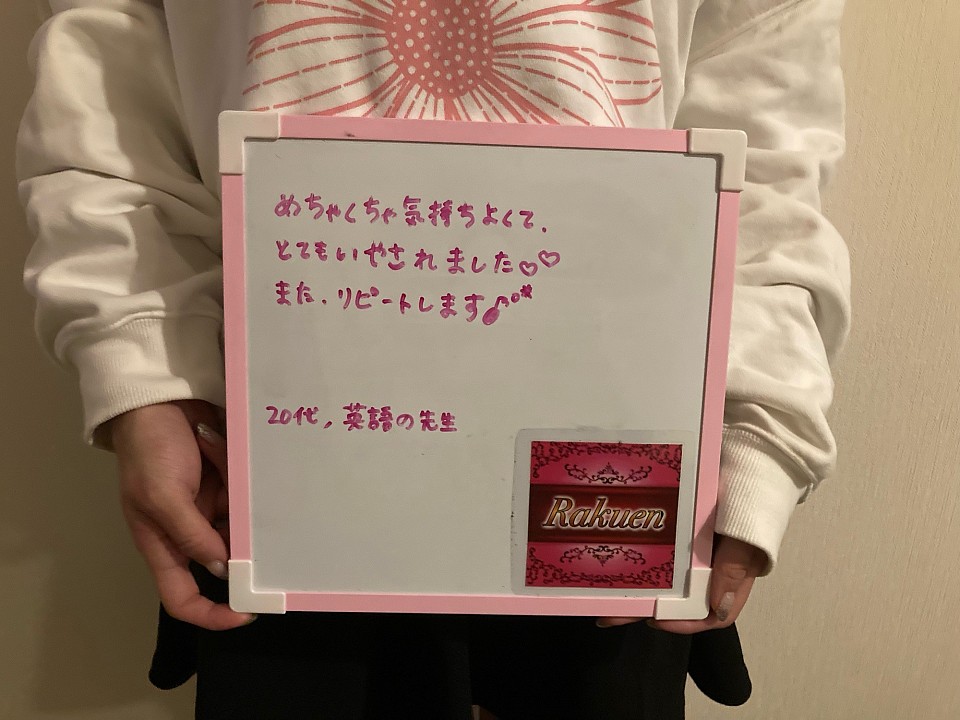 めちゃくちゃ気持ちよくて、
とてもいやされました♡♡
また、リピートします♪
20代, 英語の先生
Rakuen